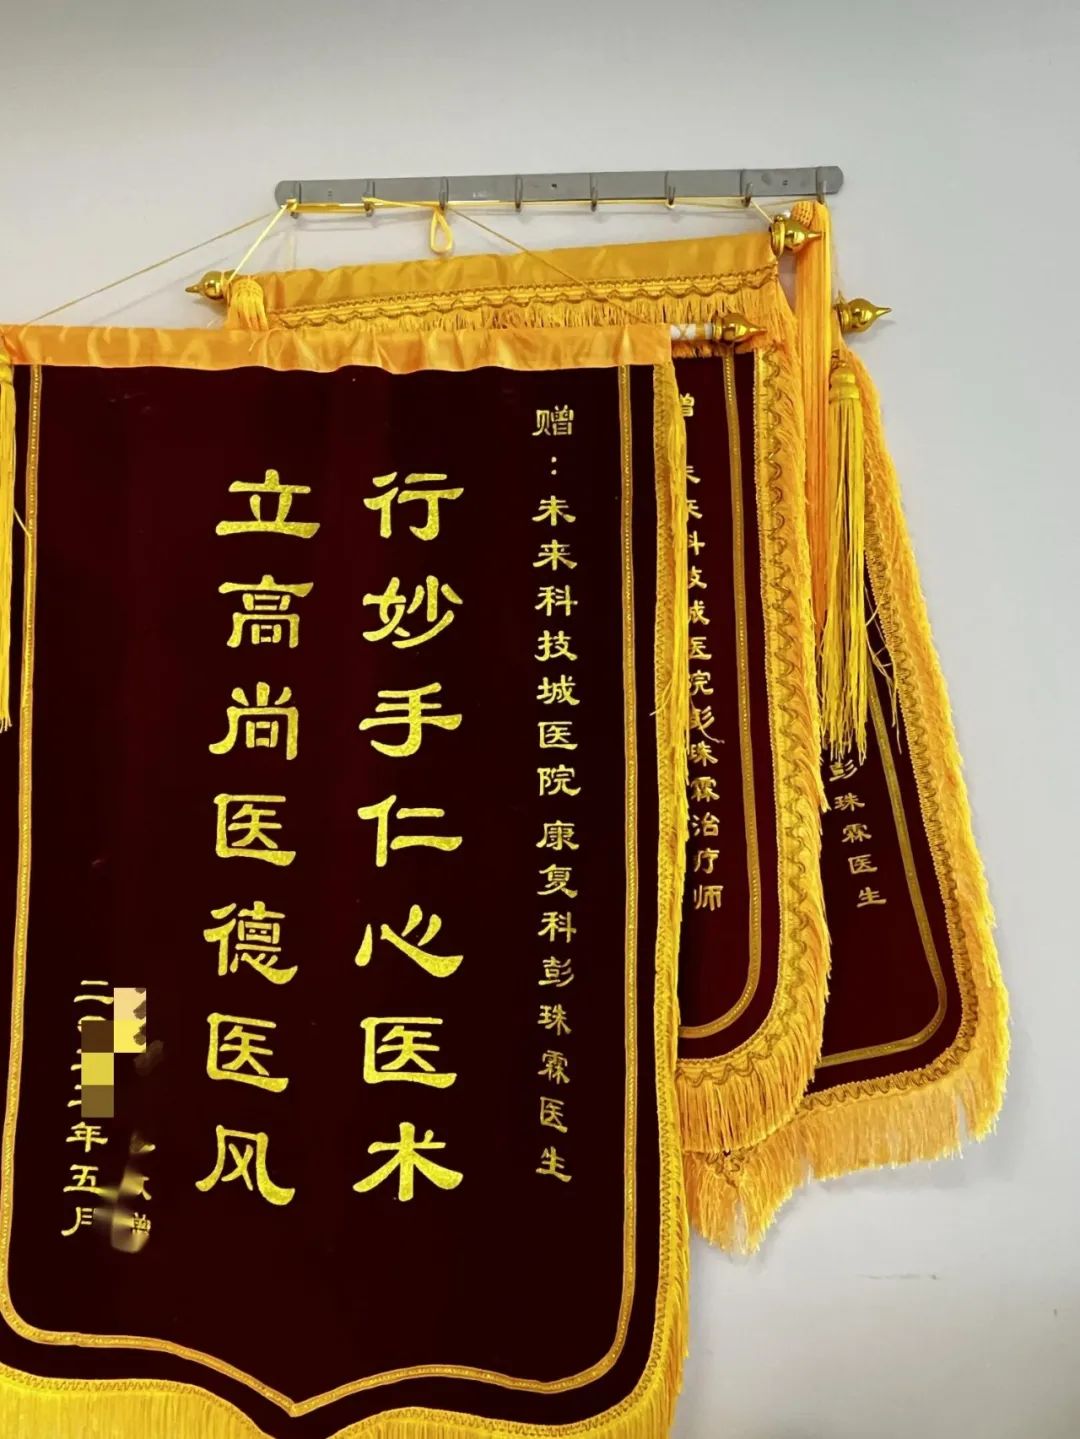 赠：未来科技城医院 康复科彭珠霖医生
行妙手仁心医术
立高尚医德医风
年五月
未来科技城医院彭珠霖治疗师
彭珠霖医生